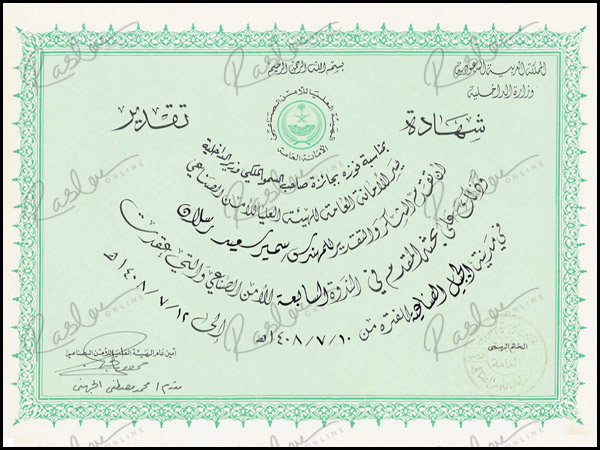 بسم الله الرحمن الرحيم
المملكة العربية السعودية
وزارة الداخلية
الهيئة العليا للأمن الصناعي
الأمانة العامة
شهادة تقدير
بمناسبة فوزه بجائزة صاحب السمو الملكي وزير الداخلية
يسر الأمانة العامة للهيئة العليا للأمن الصناعي
ان تقدم الشكر والتقدير للمهندس سمير سعيد رسلان
وذلك على بحثه المقدم في الندوة السابعة للأمن الصناعي والتي عقدت
في مدينة الجبيل الصناعية بالفترة من ١٤٠٨/٧/١٠هـ إلى ١٤٠٨/٧/١٢هـ
الختم الرسمي
أمين عام الهيئة العليا للأمن الصناعي
مقدم / محمد مصطفى الجهني
Raslan
ONLINE